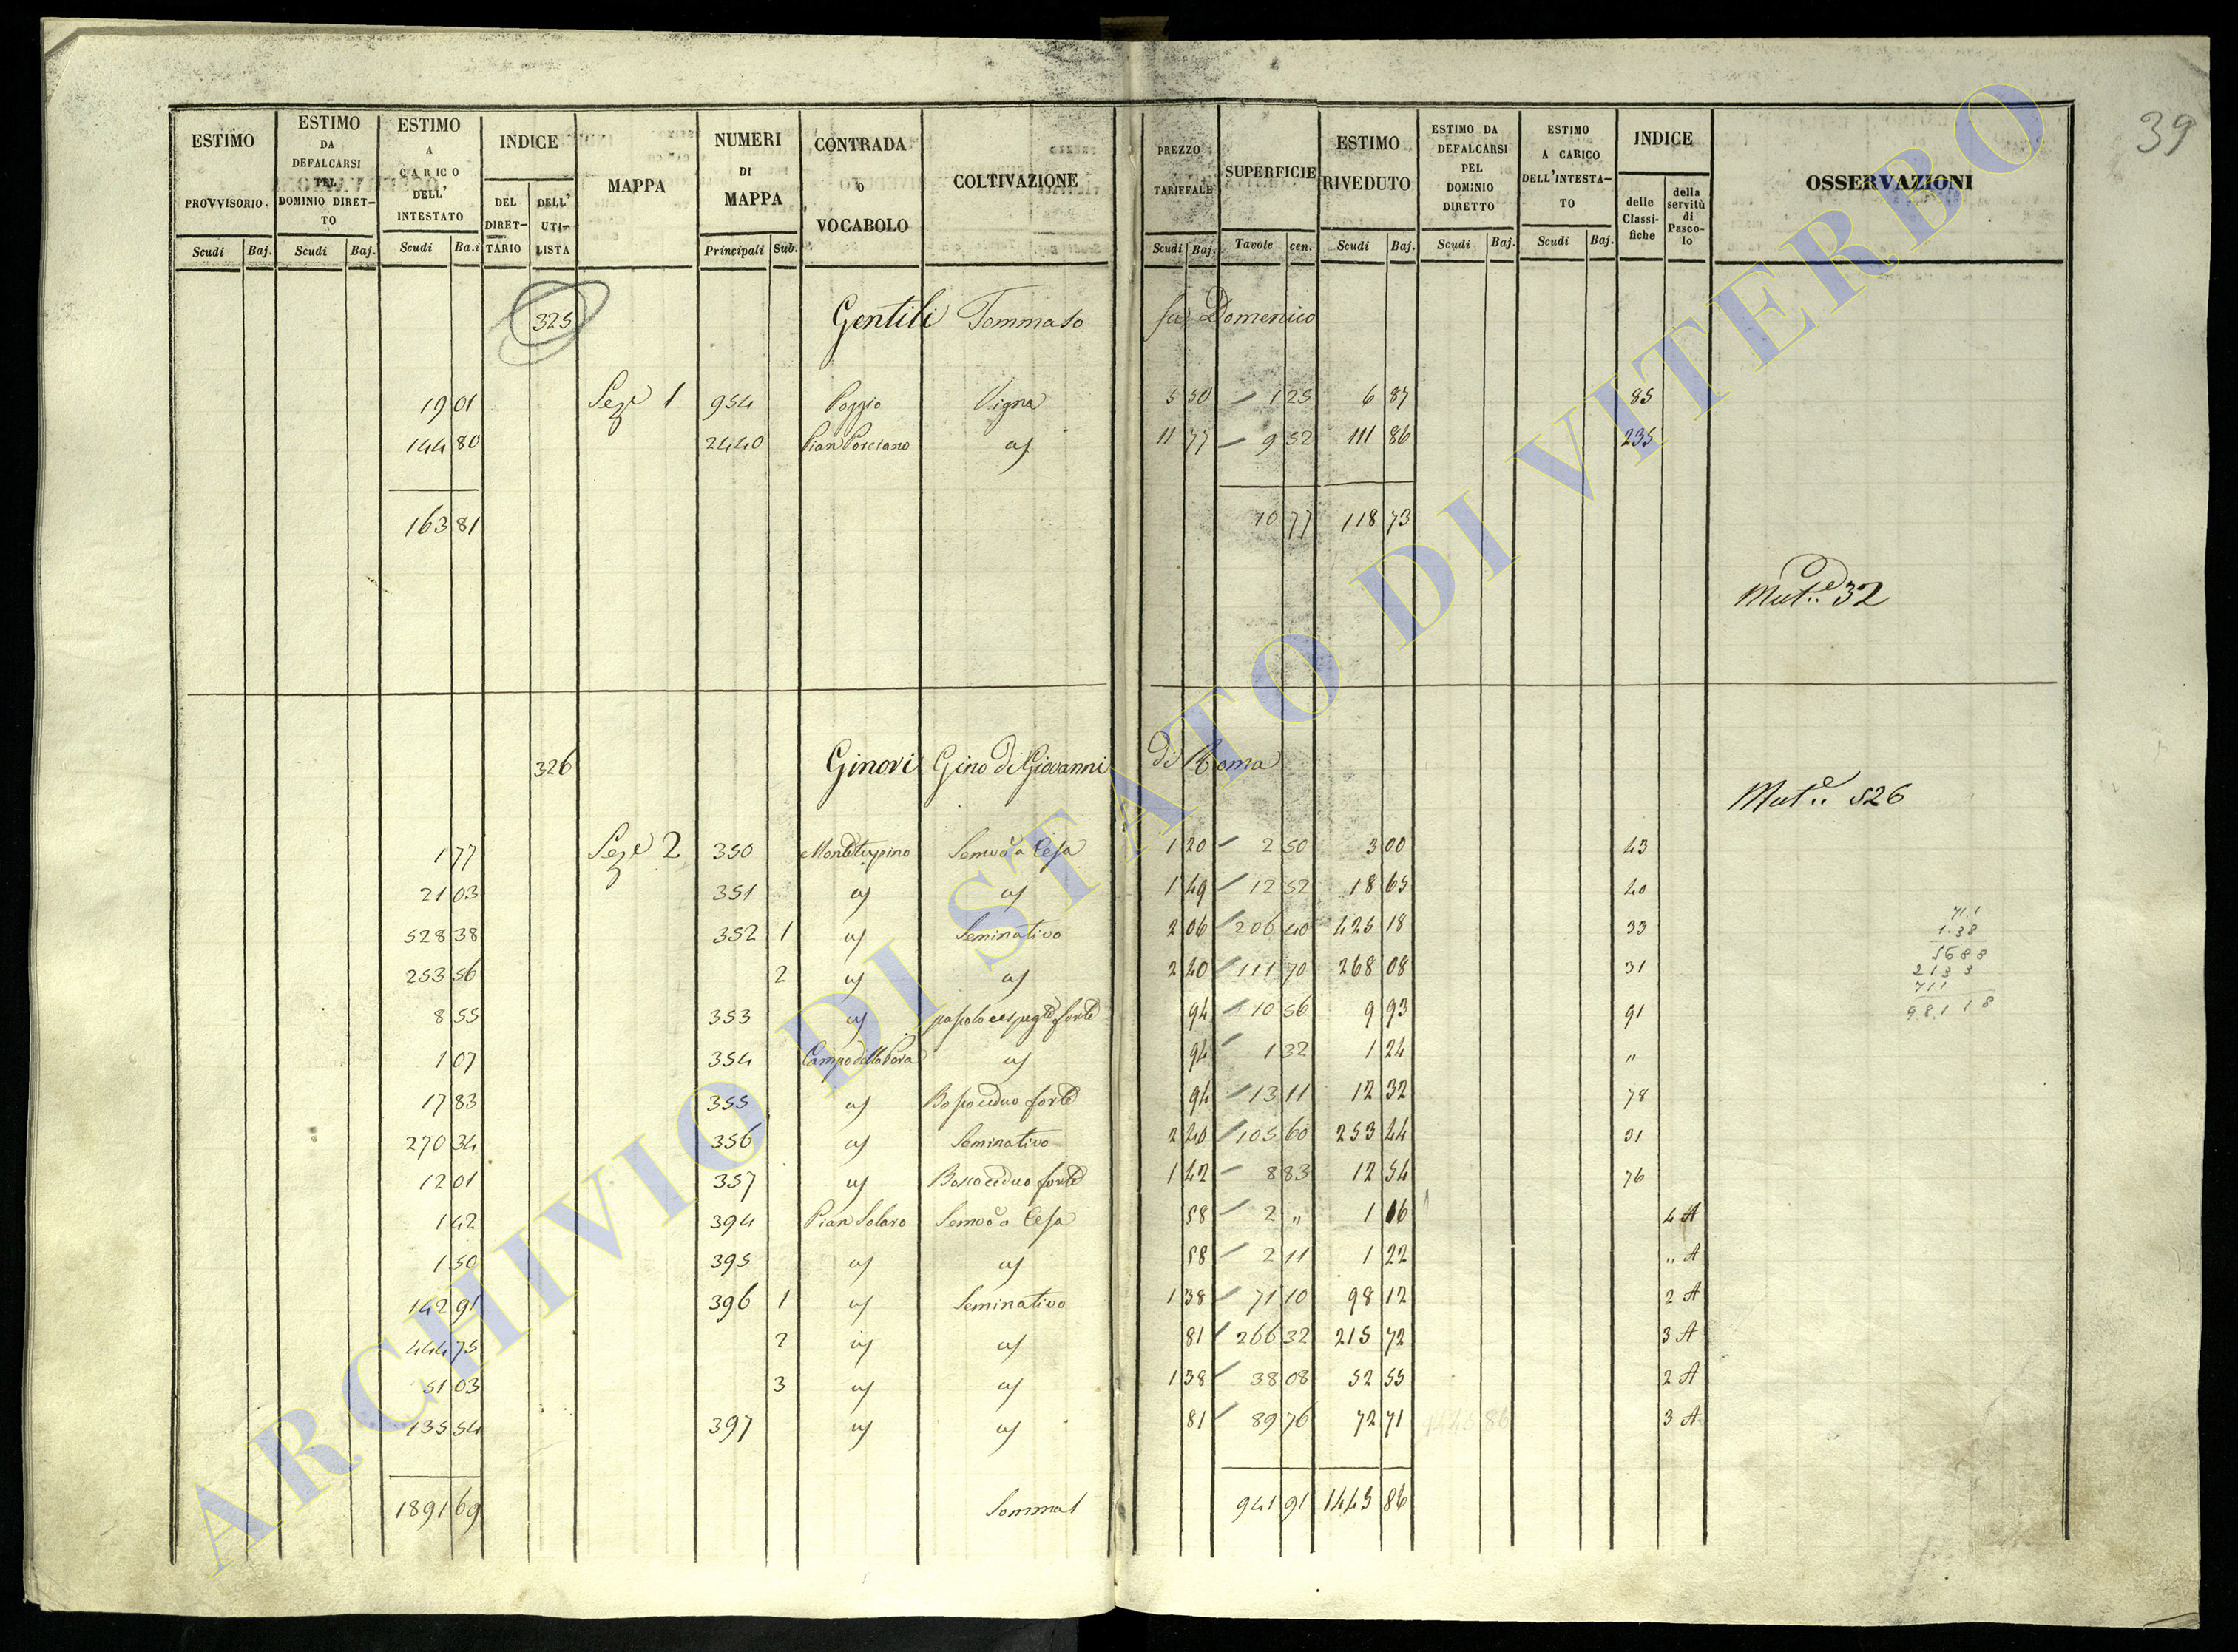 39
ESTIMO PROVVISORIO. | ESTIMO DA DEFALCARSI PEL DOMINIO DIRETTO | ESTIMO A CARICO DELL' INTESTATO | INDICE | MAPPA | NUMERI DI MAPPA | CONTRADA o VOCABOLO | COLTIVAZIONE | PREZZO TARIFFALE | SUPERFICIE | ESTIMO RIVEDUTO | ESTIMO DA DEFALCARSI PEL DOMINIO DIRETTO | ESTIMO A CARICO DELL'INTESTATO | INDICE | OSSERVAZIONI
DEL DIRETTARIO | DELL' UTILISTA | delle Classifiche | della servitù di Pascolo
Scudi | Baj. | Scudi | Baj. | Scudi | Ba.i | Principali | Sub. | Scudi | Baj. | Tavole | cen. | Scudi | Baj. | Scudi | Baj. | Scudi | Baj.
325 Gentili Tommaso fu Domenico
19 01 Sez.e 1 954 Poggio Vigna 5 50 1 25 6 87 85
144 80 2440 Pian Porciano 11 77 9 52 111 86 235
163 81 10 77 118 73
Mut.e 32
326 Ginori Gino di Giovanni di Roma
Mut.e 526
1 77 Sez.e 2 350 1 20 2 50 3 00 43
21 03 351 1 49 12 52 18 65 40
528 38 352 1 Seminativo 2 06 206 40 425 18 33
253 56 2 2 40 111 70 268 08 31
8 55 353 forte 94 10 56 9 93 91
1 07 354 94 1 32 1 24 "
17 83 355 Bosco ceduo forte 94 13 11 12 32 78
270 34 356 Seminativo 2 40 105 60 253 44 31
12 01 357 Bosco ceduo forte 1 42 8 83 12 54 76
1 42 394 Pian Solaro 58 2 " 1 16 4 A
1 50 395 58 2 11 1 22 " A
142 91 396 1 Seminativo 1 38 71 10 98 12 2 A
444 75 2 81 266 32 215 72 3 A
51 03 3 1 38 38 08 52 55 2 A
135 54 397 81 89 76 72 71 3 A
1891 69 941 91 1445 86
71.1
1.38
5688
2133
711
98.1 18
ARCHIVIO DI STATO DI VITERBO